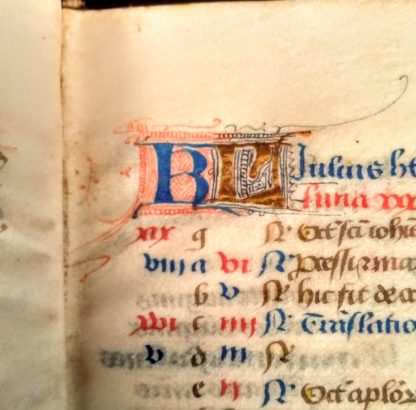 KL Julius h
luna xx
xix g N Oct sci ioh
viii a vi N Processi r ma
b v N hic fit de
xvi c iiii N Translatio
v d iii N
e ii N Oct aplor